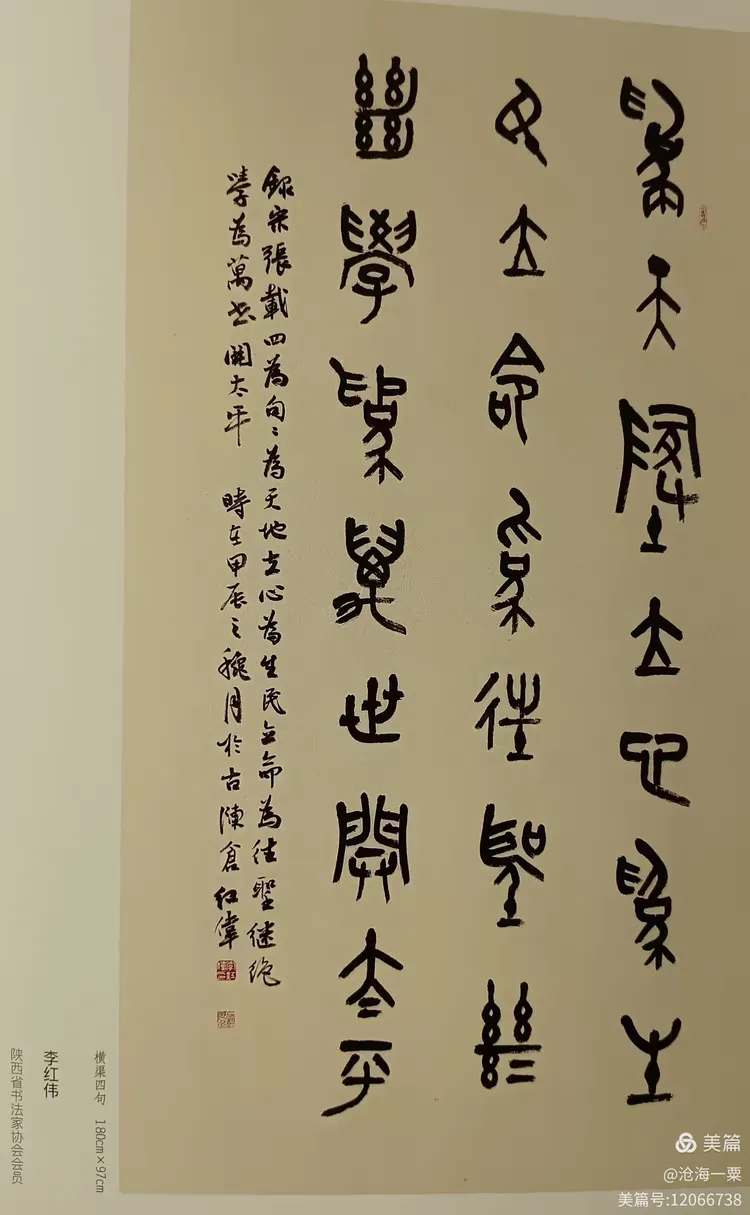 為天地立心為生
民立命為往聖繼
絕學為萬世開太平
錄宋張載四為句:為天地立心為生民立命為往聖继绝
學為萬世開太平 時在甲辰之穐月於古陳倉红偉
横渠四句 180cm×97cm
李红伟
陕西省书法家协会会员
美篇
@沧海一粟
美篇号:12066738